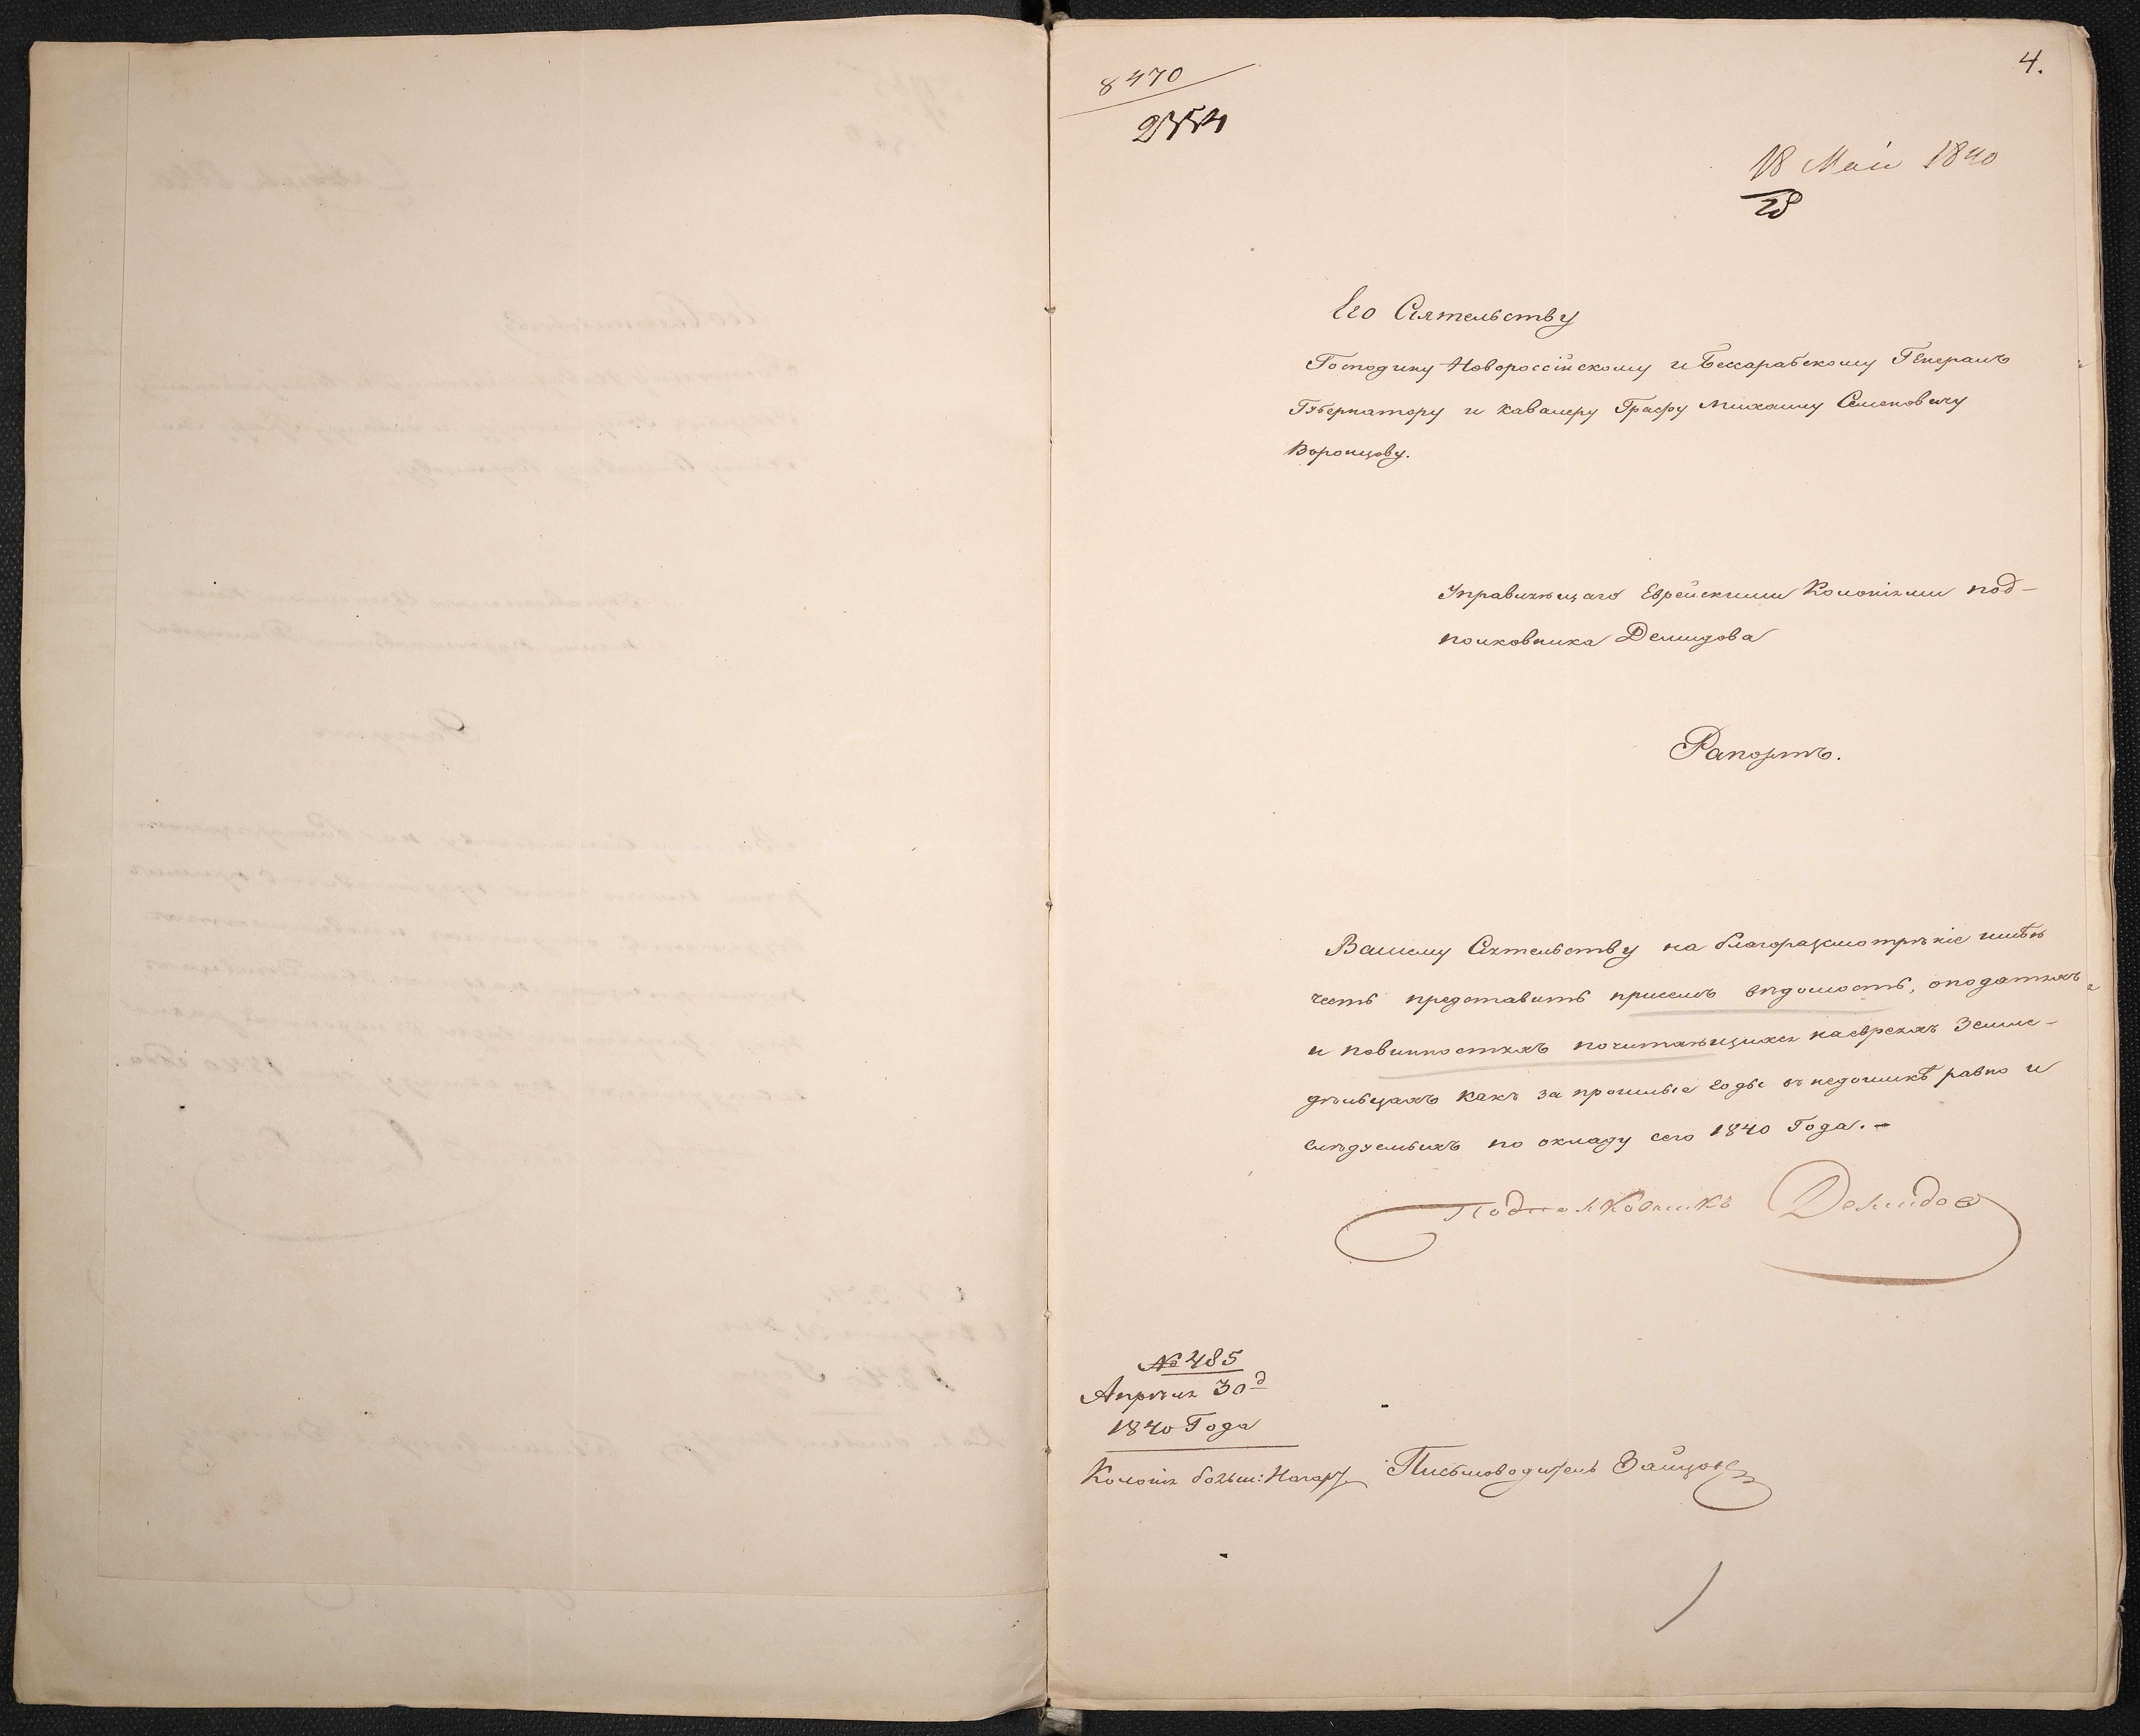 8470
4.
18 Маія 1840
Его Сіятельству
Господину Новороссійскому и Бессарабскому Генералъ
Губернатору и кавалеру Графу Михаилу Семеновичу
Воронцову.
Управляющаго Еврейскими Колоніями под-
полковника Демидова
Рапортъ.
Вашему Сіятельству на благоразсмотрѣніе имѣю
честь представить присемъ вѣдомость, оподатяхъ
и повинностяхъ почитающихся наевреяхъ Земле-
дѣльцахъ какъ за прошлые годы въ недоимкѣ равно и
слѣдуемыхъ по окладу сего 1840 Года. -
Подполковникъ Демидов
№ 485
Апрѣля 30д
1840 Года
Колонія больш: Нагарт. Письмоводитель Зайцов